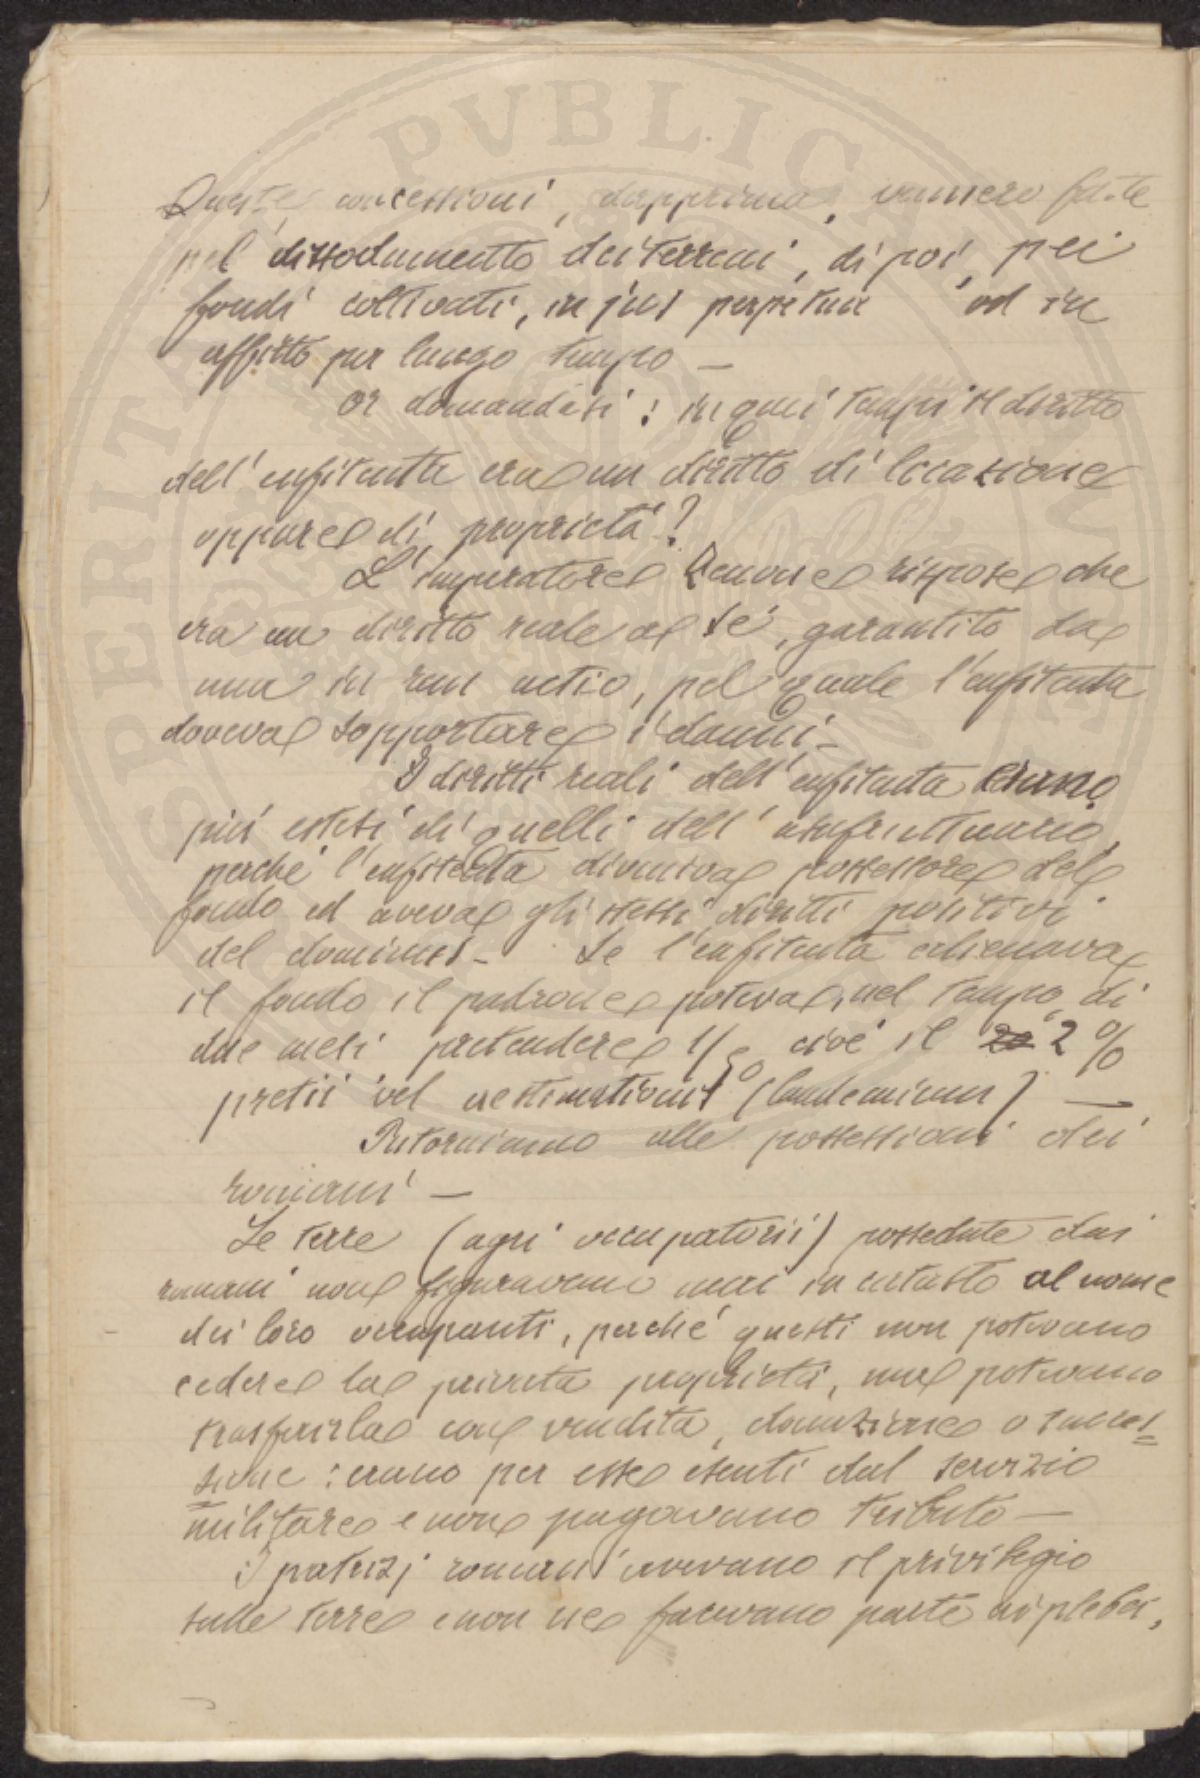 Queste concessioni, dapprima, vennero fatte
pel dissodamento dei terreni, di poi, pei
fondi coltivati, in jus perpetuu od in
affitto per lungo tempo —
Or domandasi: in quei tempi il diritto
dell'enfiteuta era un diritto di locazione
oppure di proprietà?
L'imperatore Zenone rispose che
era un diritto reale a sé, garantito da
una in rem actio, pel quale l'enfiteuta
doveva sopportare i danni —
I diritti reali dell'enfiteuta erano
più estesi di quelli dell'usufruttuario,
perché l'enfiteuta diveniva possessore del
fondo ed aveva gli stessi diritti positivi
del dominus — Se l'enfiteuta alienava
il fondo il padrone poteva, nel tempo di
due mesi pretendere 1/50 cioè il 20 2%
pretii vel aestimationis (laudemium) —
Ritorniamo alle possessioni dei
romani —
Le terre (agri occupatorii) possedute dai
romani non figuravano mai in catasto al nome
dei loro occupanti, perché questi non potevano
cedere la privata proprietà, ma potevano
trasferirla con vendita, donazione o succes=
sione: erano per esse esenti dal servizio
militare e non pagavano tributo —
I patrizj romani avevano il privilegio
sulle terre e non ne facevano parte ai plebei,
PVBLICA
SPERITA